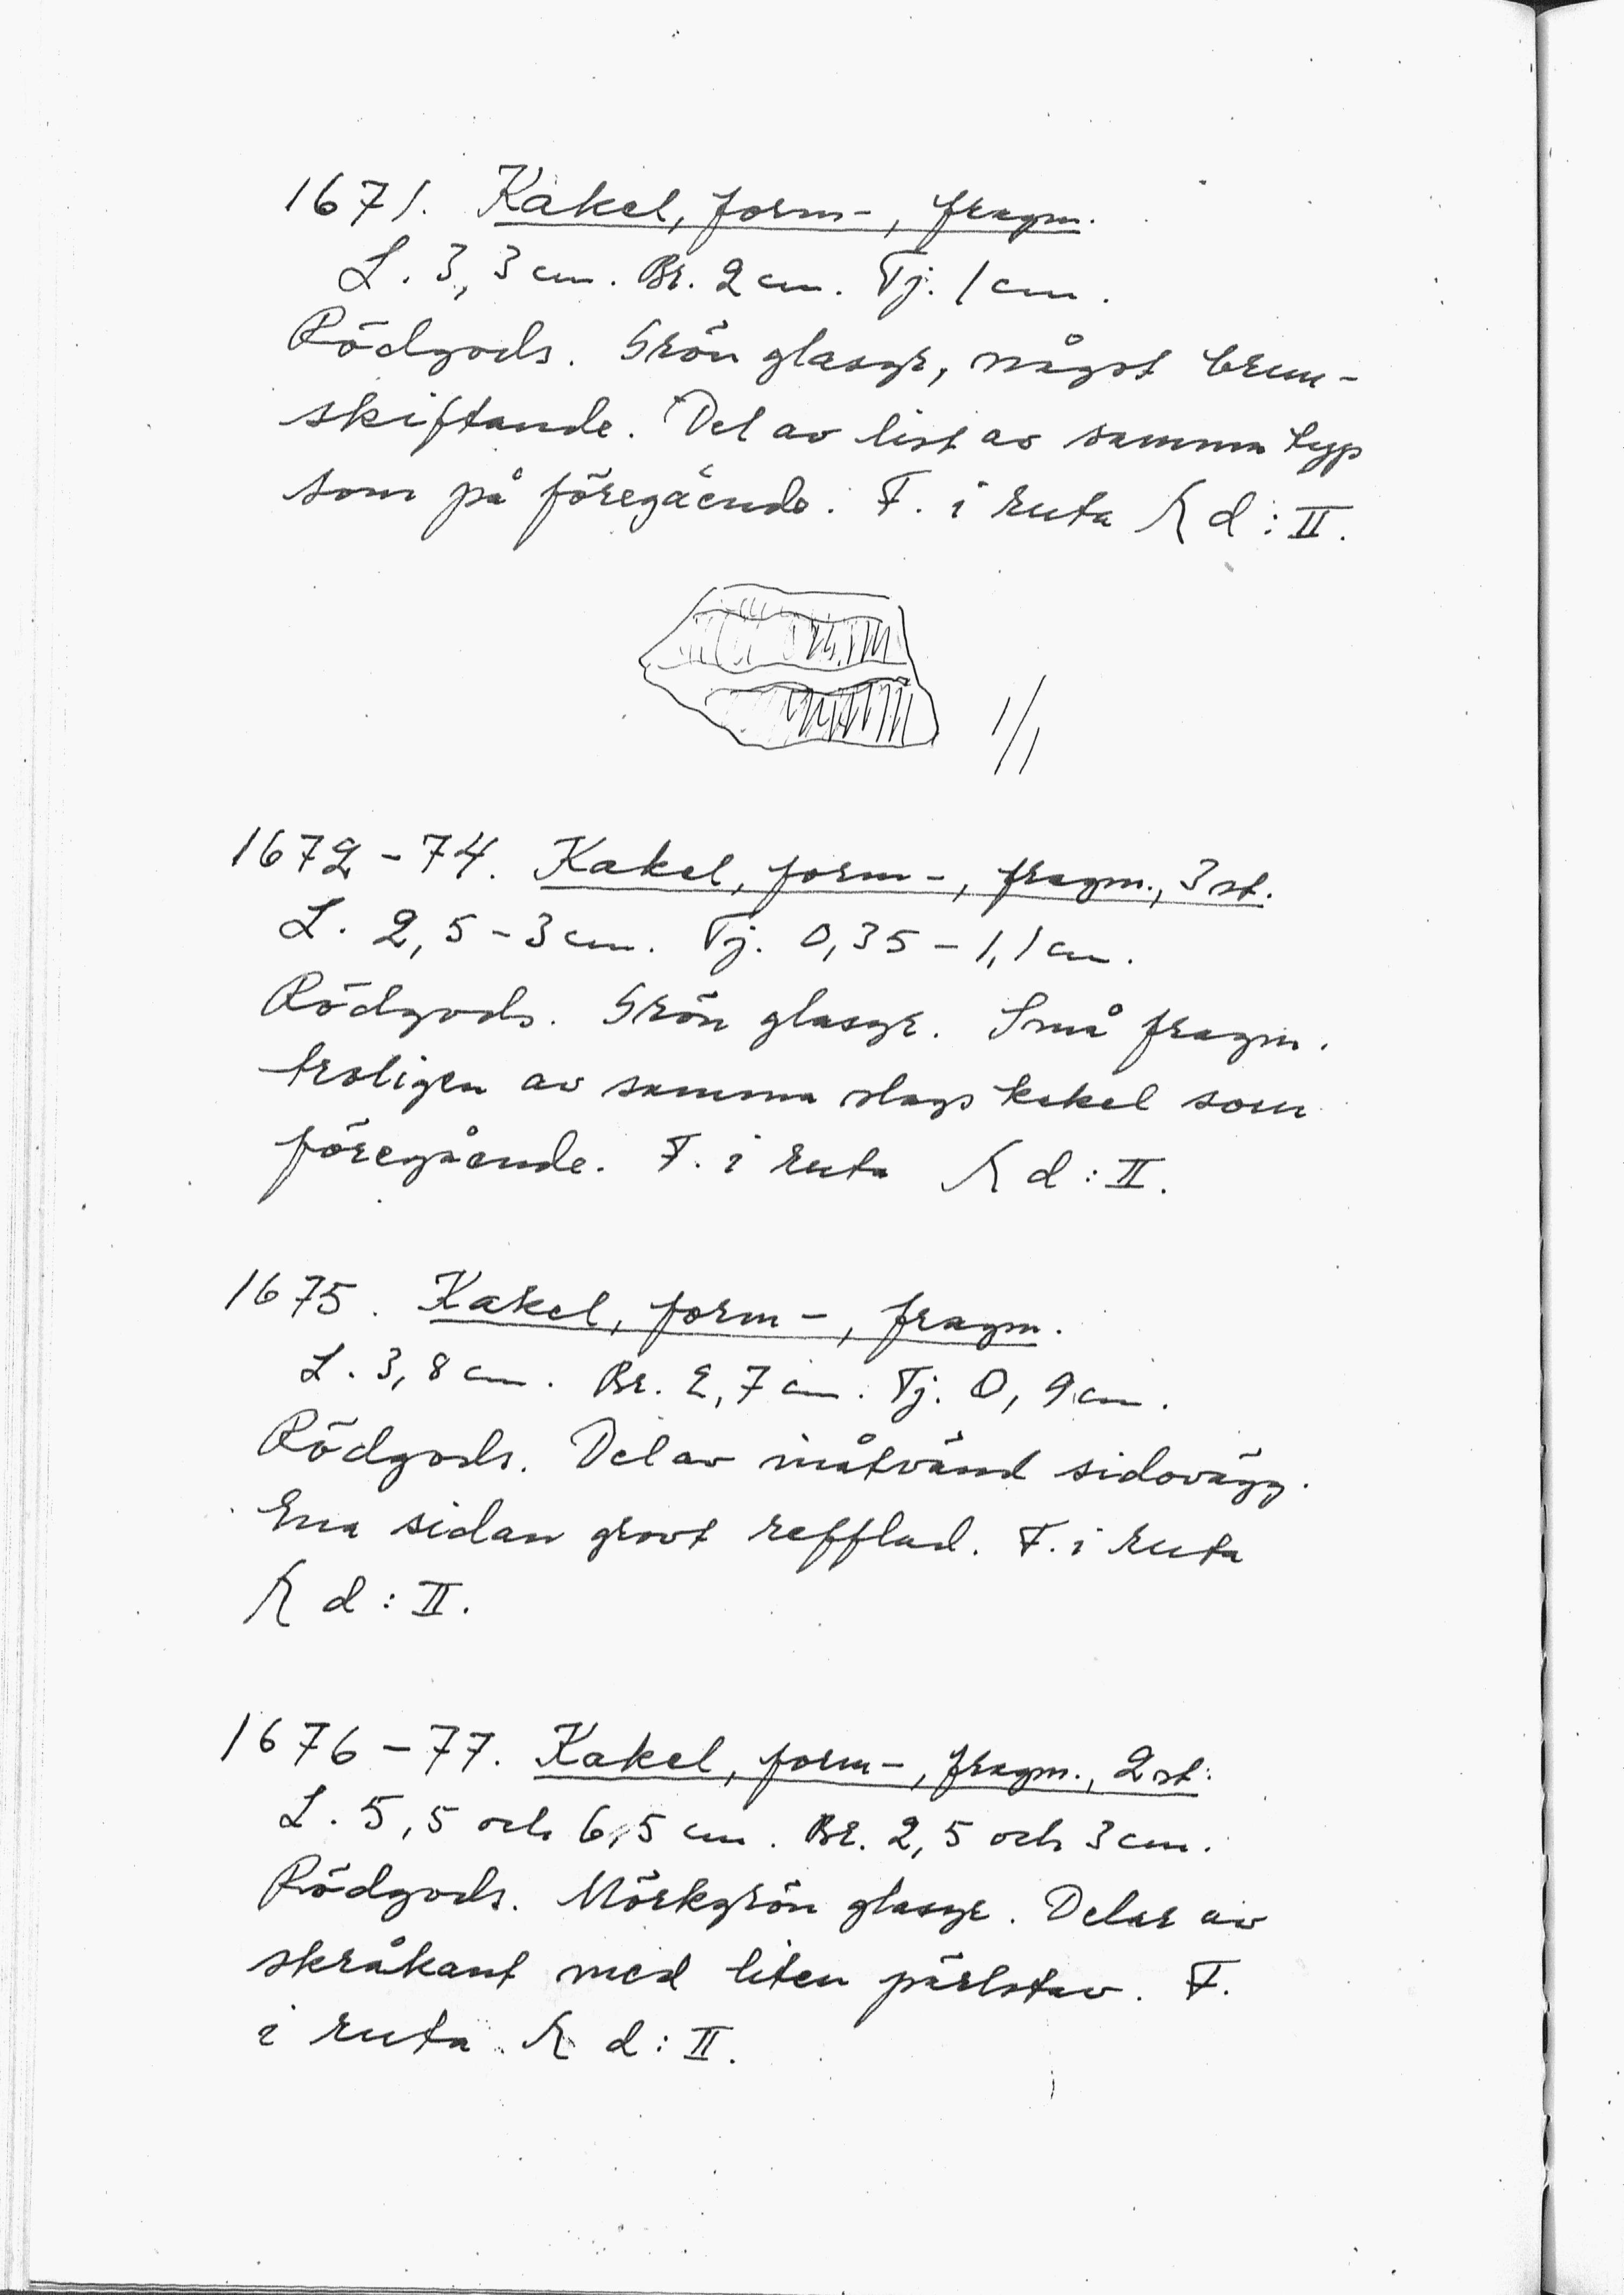 1671. Kakel, form-, fragm.
L. 3,3 cm. Br. 2 cm. Tj. 1 cm.
Rödgods. Grön glasyr, något brun-
skiftande. Del av list av samma typ
som på föregående. F. i ruta R d : II.
1/1
1672-74. Kakel, form-, fragm., 3 st.
L. 2,5-3 cm. Tj. 0,35-1,1 cm.
Rödgods. Grön glasyr. Små fragm.
troligen av samma slags kakel som
föregående. F. i ruta R d : II.
1675. Kakel, form-, fragm.
L. 3,8 cm. Br. 2,7 cm. Tj. 0,9 cm.
Rödgods. Del av inåtvänd sidovägg.
Ena sidan grovt refflad. F. i ruta
R d : II.
1676-77. Kakel, form-, fragm., 2 st.
L. 5,5 och 6,5 cm. Br. 2,5 och 3 cm.
Rödgods. Mörkgrön glasyr. Delar av
skråkant med liten pärlstav. F.
i ruta R d : II.